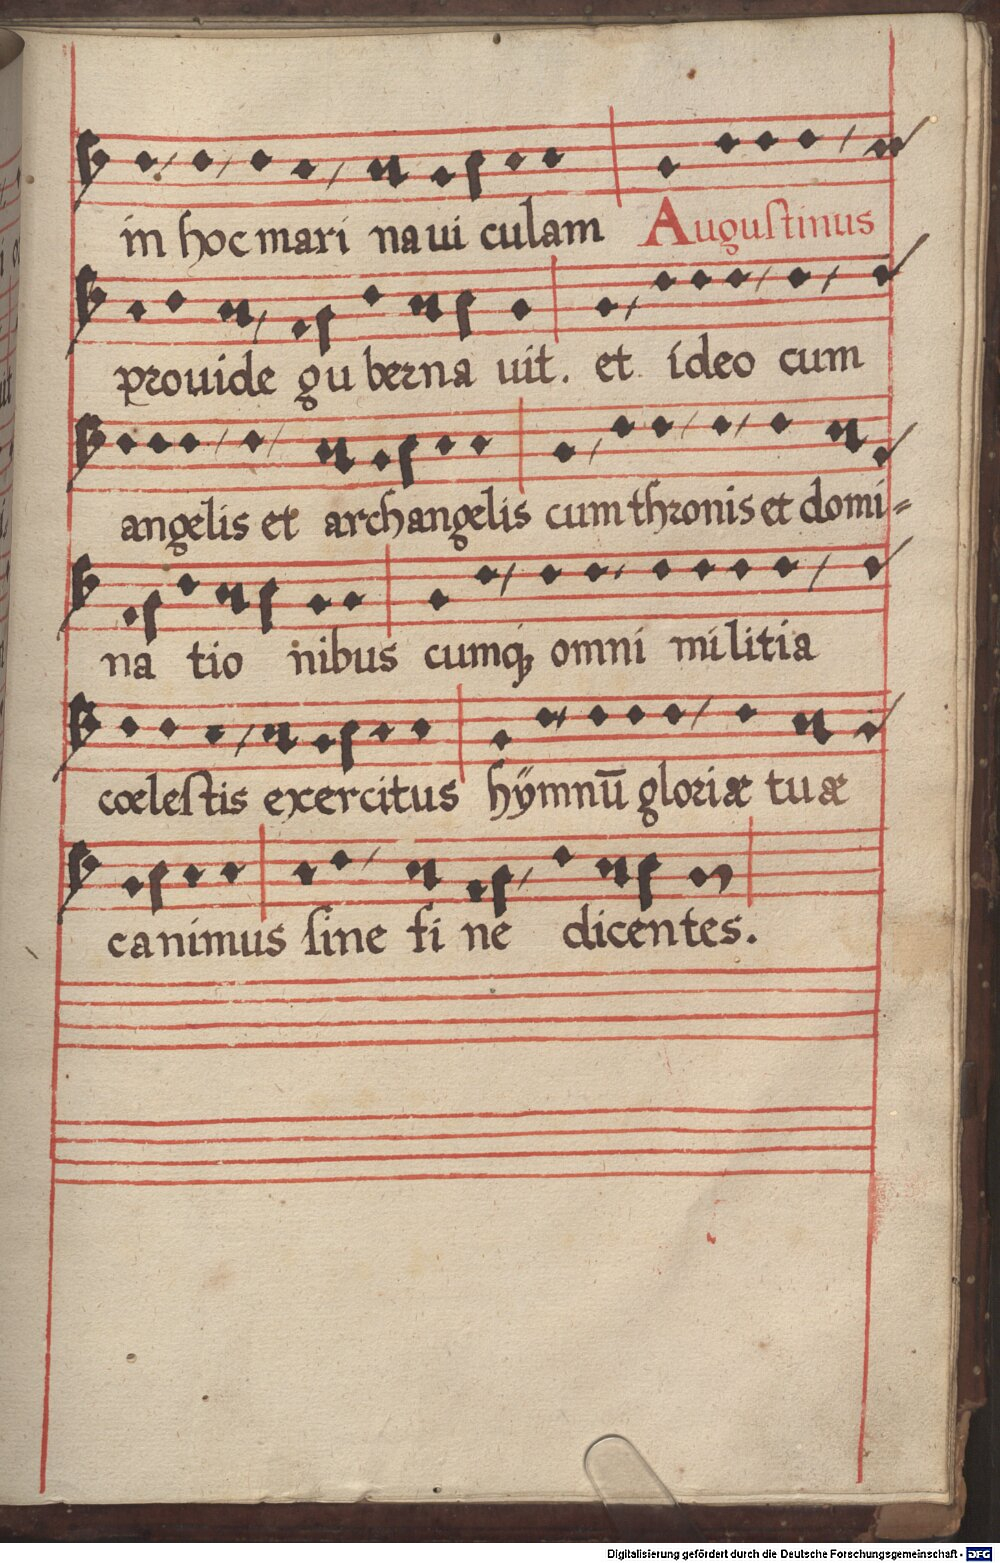 in hoc mari naui culam Auguſtinus
prouide gu berna uit. et ideo cum
angelis et archangelis cum thronis et domi=
na tio nibus cumq; omni militia
cœleſtis exercitus hÿmnū gloriæ tuæ
canimus ſine fi ne dicentes.
Digitalisierung gefördert durch die Deutsche Forschungsgemeinschaft - DFG